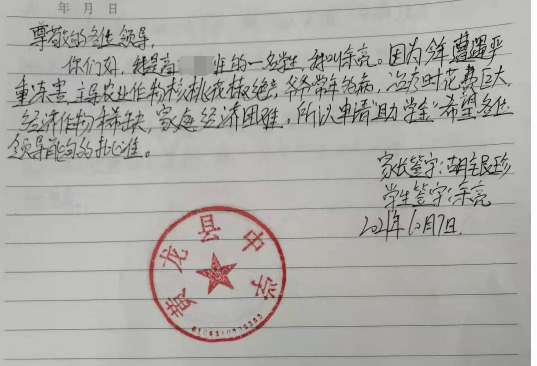 年 月 日
尊敬的各位领导,
你们好,我是高 班的一名学生,我叫余亮。因为今年遭遇严
重冻害,主导农业作物核桃花椒绝产,爷爷常年多病,治疗时花费巨大,
经济作物稀缺,家庭经济困难,所以申请"助学金"希望各位
领导能够的批准。
家长签字:胡民珍
学生签字:余亮
2021年10月7日.
黄龙县中学